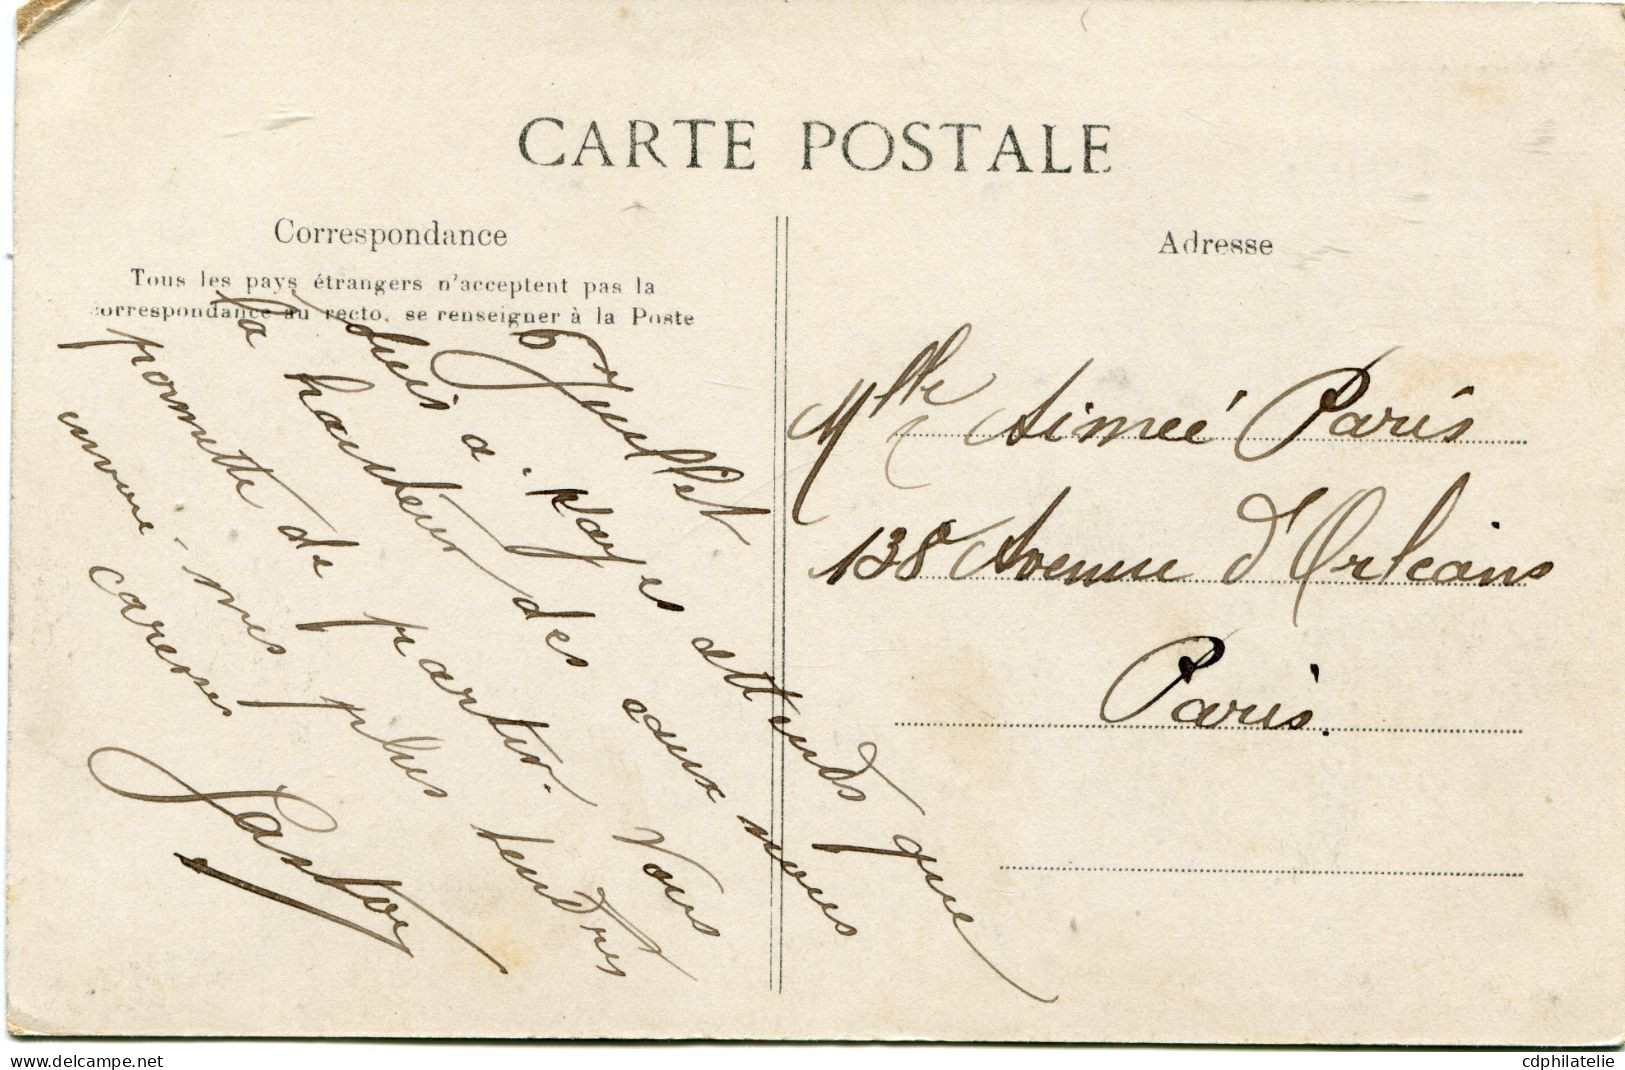 CARTE POSTALE
Correspondance
Tous les pays étrangers n'acceptent pas la
correspondance au recto, se renseigner à la Poste
6 Juillet
suis à Nayes attends que
la hauteur des eaux nous
permette de partir. Vous
envoie mes plus tendres
caresses
Adresse
Mlle Aimeé Paris
138 Avenue d'Orleans
Paris.
www.delcampe.net
cdphilatelie